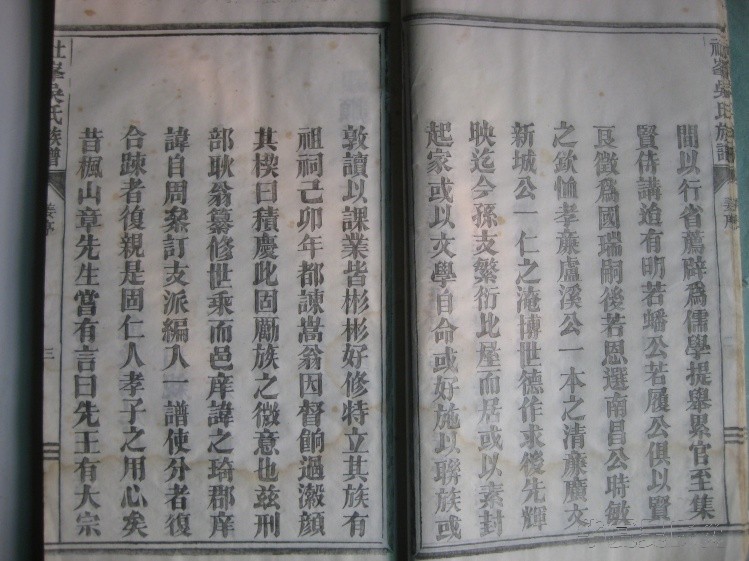 間以行省薦辟為儒學提舉累官至集
賢侍講迨有明若蟠公若履公俱以賢
良徵為國瑞嗣後若恩選南昌公時敏
之欽恤孝亷盧溪公一本之清亷廣文
新城公一仁之淹博世德作求後先輝
映迄今孫支繁衍比屋而居或以素封
起家或以文學自命或好施以聯族或
敦讀以課業皆彬彬好修特立其族有
祖祠己卯年都諫嵩翁因督餉過澉顔
其楔曰積慶此固勵族之微意也兹刑
部耿翁纂修世乘而邑庠諱之琦郡庠
諱自周案訂支派編入一譜使分者復
合踈者復親是固仁人孝子之用心矣
昔楓山章先生嘗有言曰先王有大宗
吳氏族譜
姜序
三